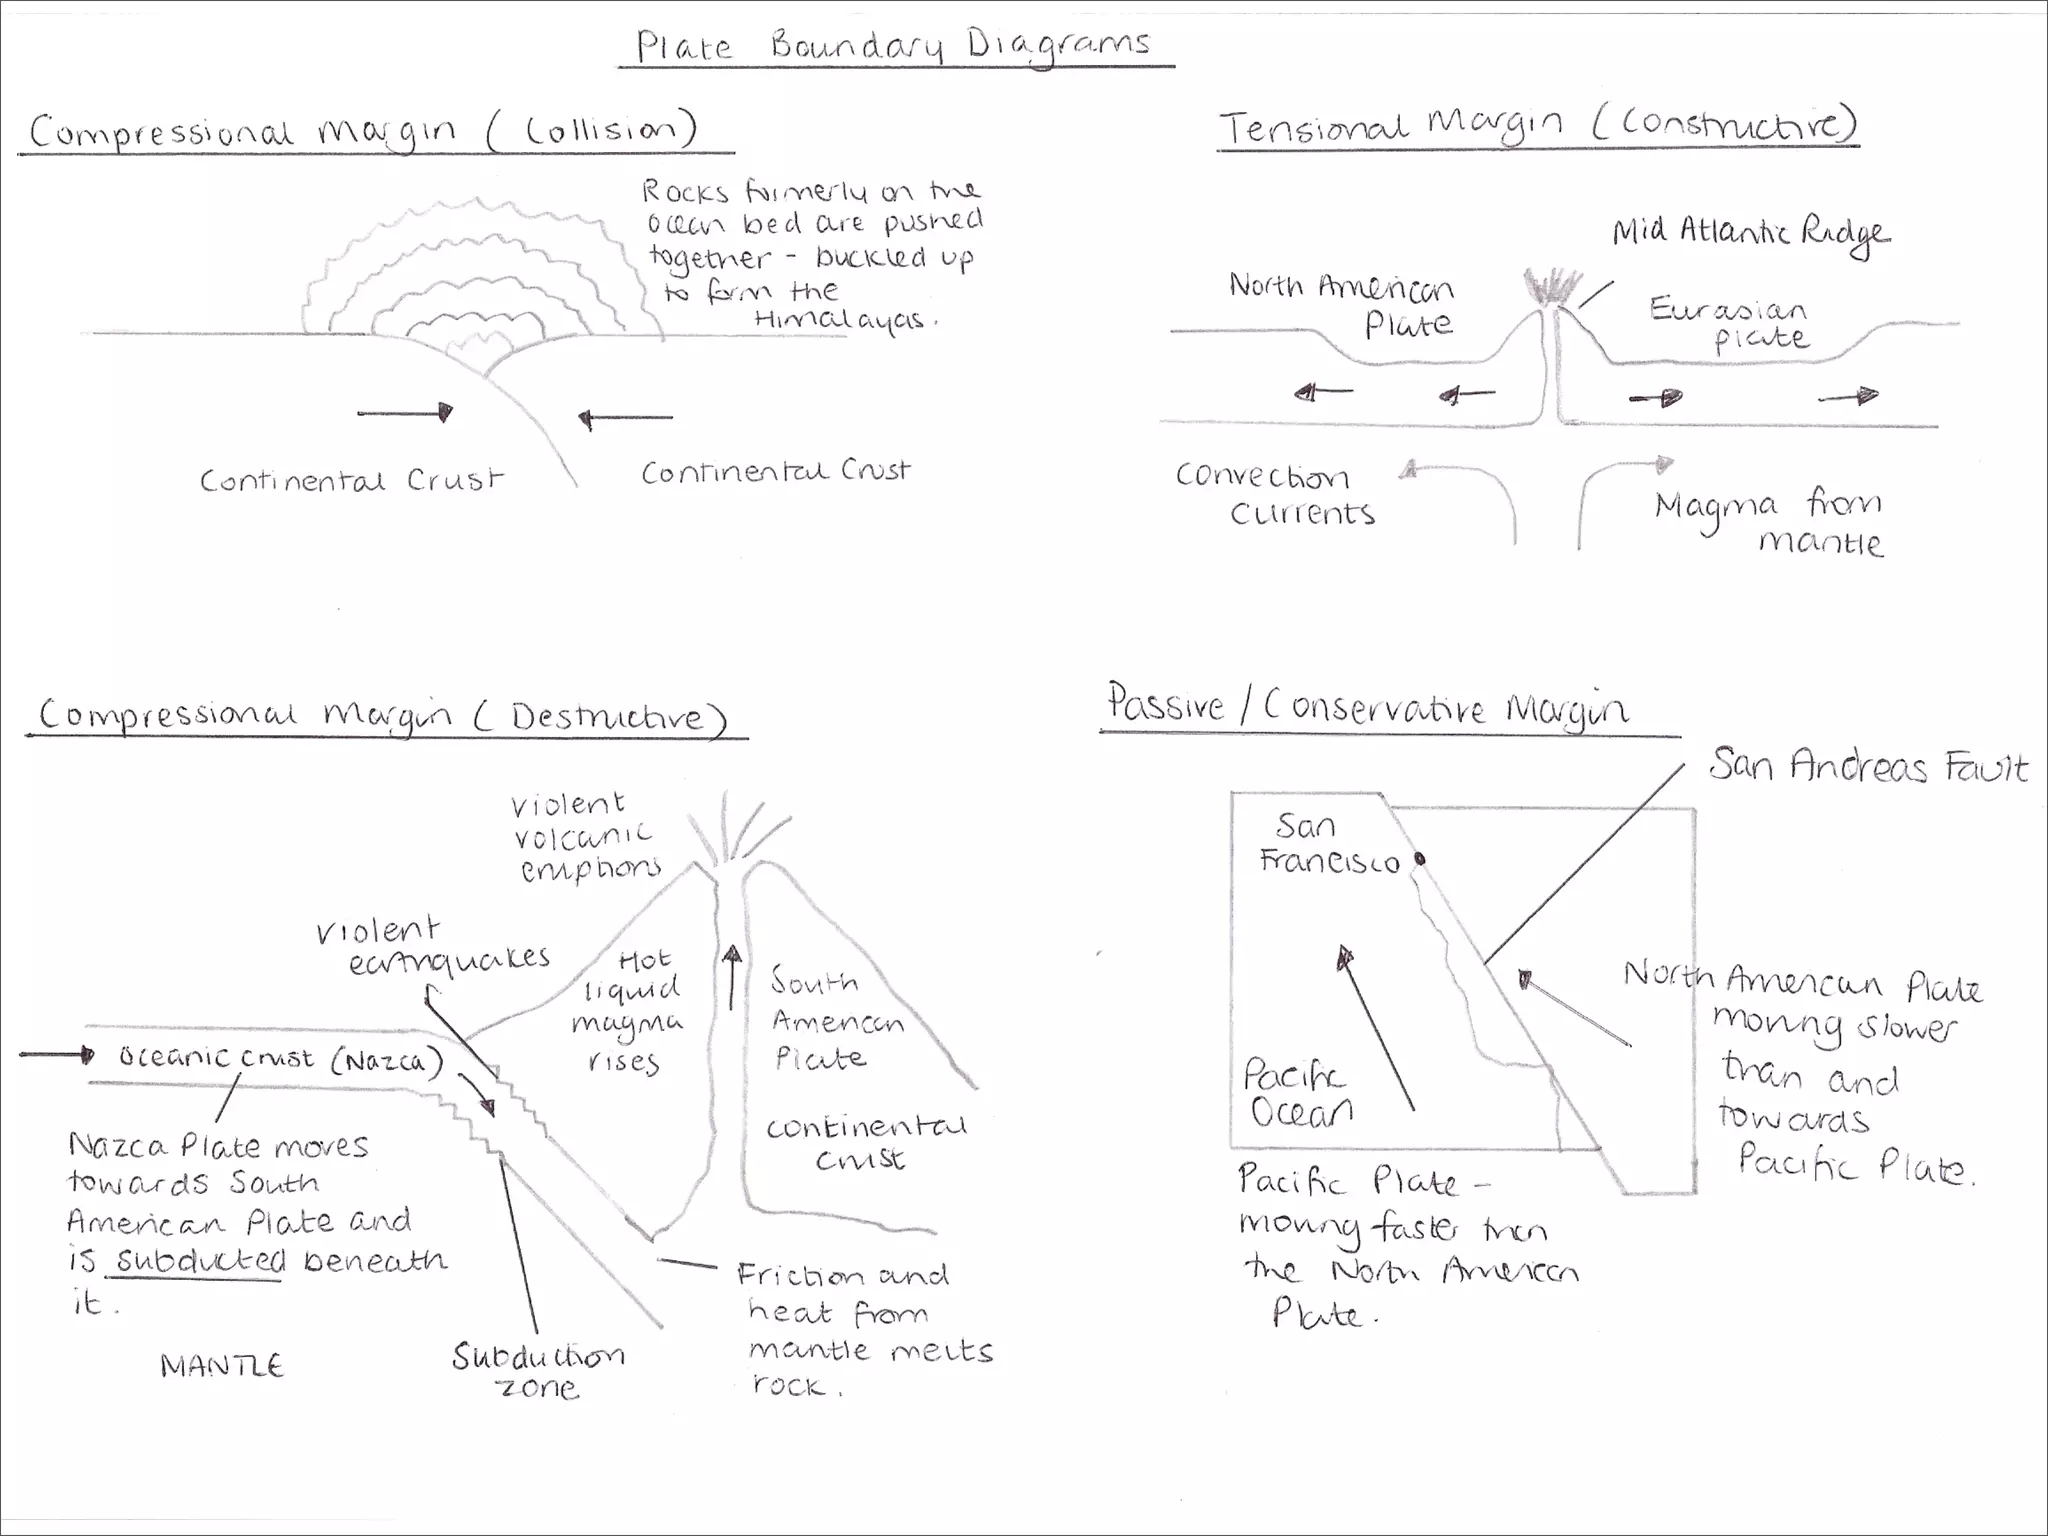 Plate Boundary Diagrams
Compressional Margin (Collision)
Rocks formerly on the
ocean bed are pushed
together - buckled up
to form the
Himalayas.
Continental Crust
Continental Crust
Tensional Margin (Constructive)
Mid Atlantic Ridge
North American
Plate
Eurasian
plate
Convection
Currents
Magma from
mantle
Compressional Margin (Destructive)
Violent
volcanic
eruptions
Violent
earthquakes
Hot
liquid
magma
rises
South
American
Plate
continental
crust
Oceanic crust (Nazca)
Nazca Plate moves
towards South
American Plate and
is subducted beneath
it.
MANTLE
Subduction
zone
Friction and
heat from
mantle melts
rock.
Passive / Conservative Margin
San Andreas Fault
San
Francisco
North American Plate
moving slower
than and
towards
Pacific Plate.
Pacific
Ocean
Pacific Plate -
moving faster than
the North American
Plate.